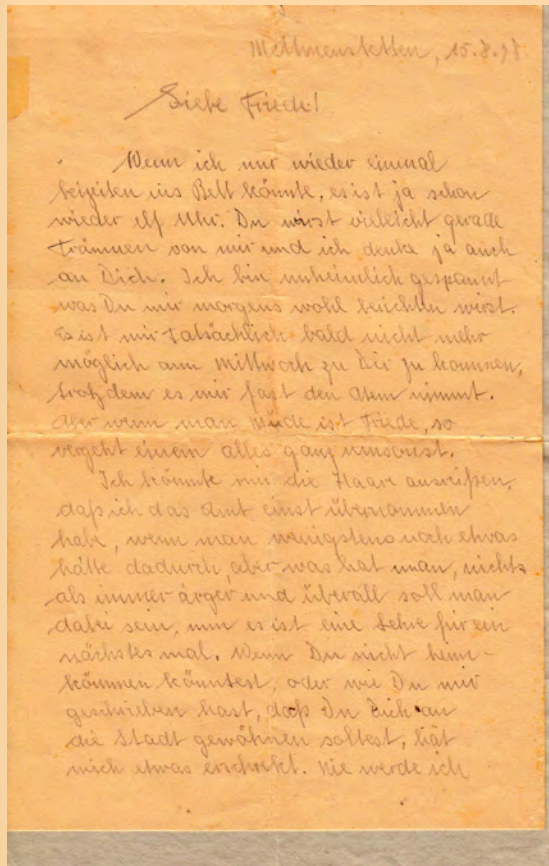 Mettmenstetten, 15.8.
Liebe Friede!
Wenn ich nur wieder einmal
beizeiten ins Bett könnte, es ist ja schon
wieder elf Uhr. Du wirst vieleicht gerade
träumen von mir und ich denke ja auch
an Dich. Ich bin unheimlich gespannt
was Du mir morgens wohl berichten wirst.
Es ist mir tatsächlich bald nicht mehr
möglich am Mittwoch zu Dir zu kommen,
trotzdem es mir fast den Atem nimmt.
Aber wenn man müde ist Friede, so
vergeht einem alles ganz umsonst.
Ich könnte mir die Haare ausreißen,
daß ich das Amt einst übernommen
habe, wenn man wenigstens noch etwas
hätte dadurch, aber was hat man, nichts
als immer ärger und überall soll man
dabei sein, nun es ist eine Lehre für ein
nächstes mal. Wenn Du nicht heim-
kommen könntest, oder wie Du mir
geschrieben hast, daß Du Dich an
die Stadt gewöhnen soltest, hat
mich etwas erschrekt. Nie werde ich